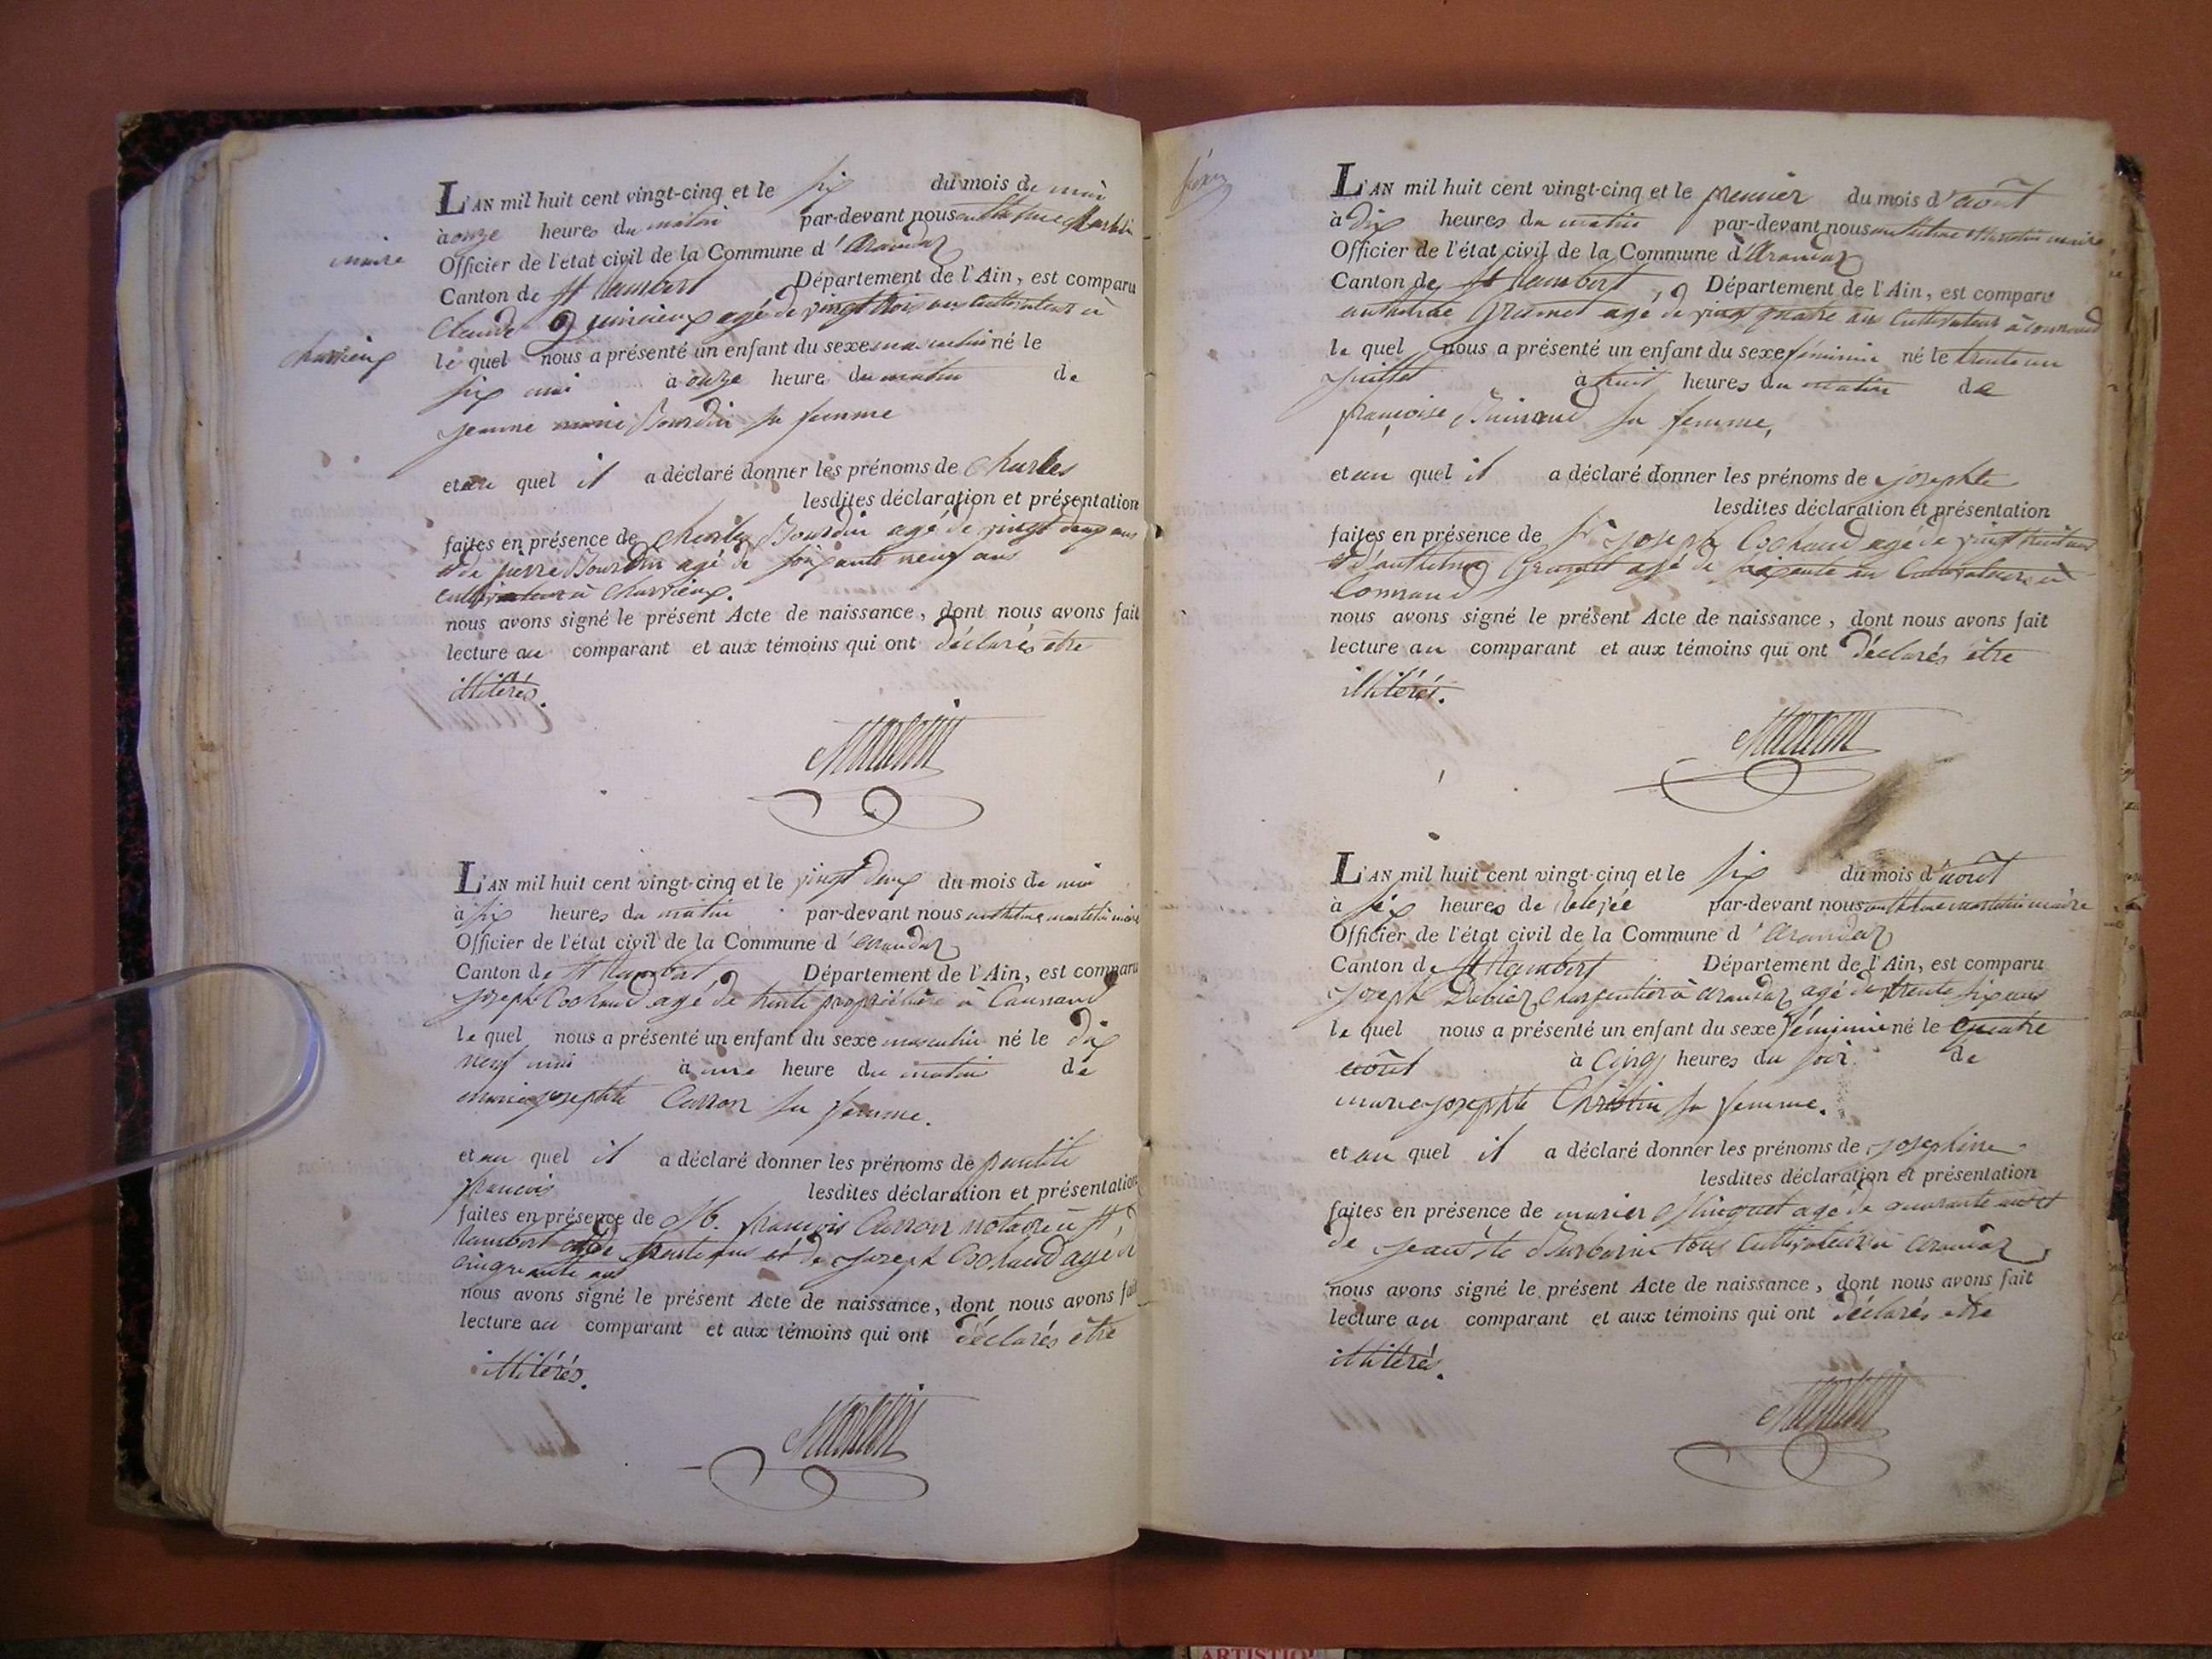 L'AN mil huit cent vingt-cinq et le six du mois de mai
à onze heures du matin par-devant nous anthelme Martelin
maire
Officier de l'état civil de la Commune d'arandaz
Canton de St Rambert Département de l'Ain, est comparu
Claude quinieux agé de vingt trois ans cultivateur à
charvieux
le quel nous a présenté un enfant du sexe masculin né le
six mai à onze heure du matin de
jeanne marie Bourdin sa femme
et au quel il a déclaré donner les prénoms de charles
lesdites déclaration et présentation
faites en présence de charles Bourdin agé de vingt deux ans
et de pierre Bourdin agé de soixante neuf ans
cultivateur à charvieux.
nous avons signé le présent Acte de naissance, dont nous avons fait
lecture au comparant et aux témoins qui ont déclarés être
illitérés.
Martelin
L'AN mil huit cent vingt-cinq et le vingt deux du mois de mai
à six heures du matin par-devant nous anthelme martelin maire
Officier de l'état civil de la Commune d'arandaz
Canton de St Rambert Département de l'Ain, est comparu
joseph Cochaud agé de trente propriétaire à Connaud
le quel nous a présenté un enfant du sexe masculin né le dix
neuf mai à une heure du matin de
marie josephte Carron sa femme.
et au quel il a déclaré donner les prénoms de
francois lesdites déclaration et présentation
faites en présence de françois Carron notaire à St
Rambert agé de trente ans et de joseph Cochaud agé de
cinquante ans
nous avons signé le présent Acte de naissance, dont nous avons fait
lecture au comparant et aux témoins qui ont déclarés être
illitérés.
Martelin
L'AN mil huit cent vingt-cinq et le premier du mois d'août
à dix heures du matin par-devant nous anthelme Martelin maire
Officier de l'état civil de la Commune d'arandaz
Canton de St Rambert Département de l'Ain, est comparu
anthelme Gramet agé de vingt quatre ans cultivateur à connaud
le quel nous a présenté un enfant du sexe féminin né le trente un
juillet à huit heures du matin de
françoise sa femme,
et au quel il a déclaré donner les prénoms de josephte
lesdites déclaration et présentation
faites en présence de joseph Cochaud agé de vingt huit ans
et d'anthelme Gramet agé de ans cultivateurs à
Connaud
nous avons signé le présent Acte de naissance, dont nous avons fait
lecture au comparant et aux témoins qui ont déclarés être
illitérés.
Martelin
L'AN mil huit cent vingt-cinq et le six du mois d'août
à six heures de par-devant nous anthelme martelin maire
Officier de l'état civil de la Commune d'arandaz
Canton de St Rambert Département de l'Ain, est comparu
joseph Debiaz charpentier à arandaz agé de trente six ans
le quel nous a présenté un enfant du sexe féminin né le quatre
août à cinq heures du soir de
marie josephte Christin sa femme.
et au quel il a déclaré donner les prénoms de josephine
lesdites déclaration et présentation
faites en présence de marier agé de quarante ans et
de tous cultivateurs à arandaz
nous avons signé le présent Acte de naissance, dont nous avons fait
lecture au comparant et aux témoins qui ont déclarés être
illitérés.
Martelin